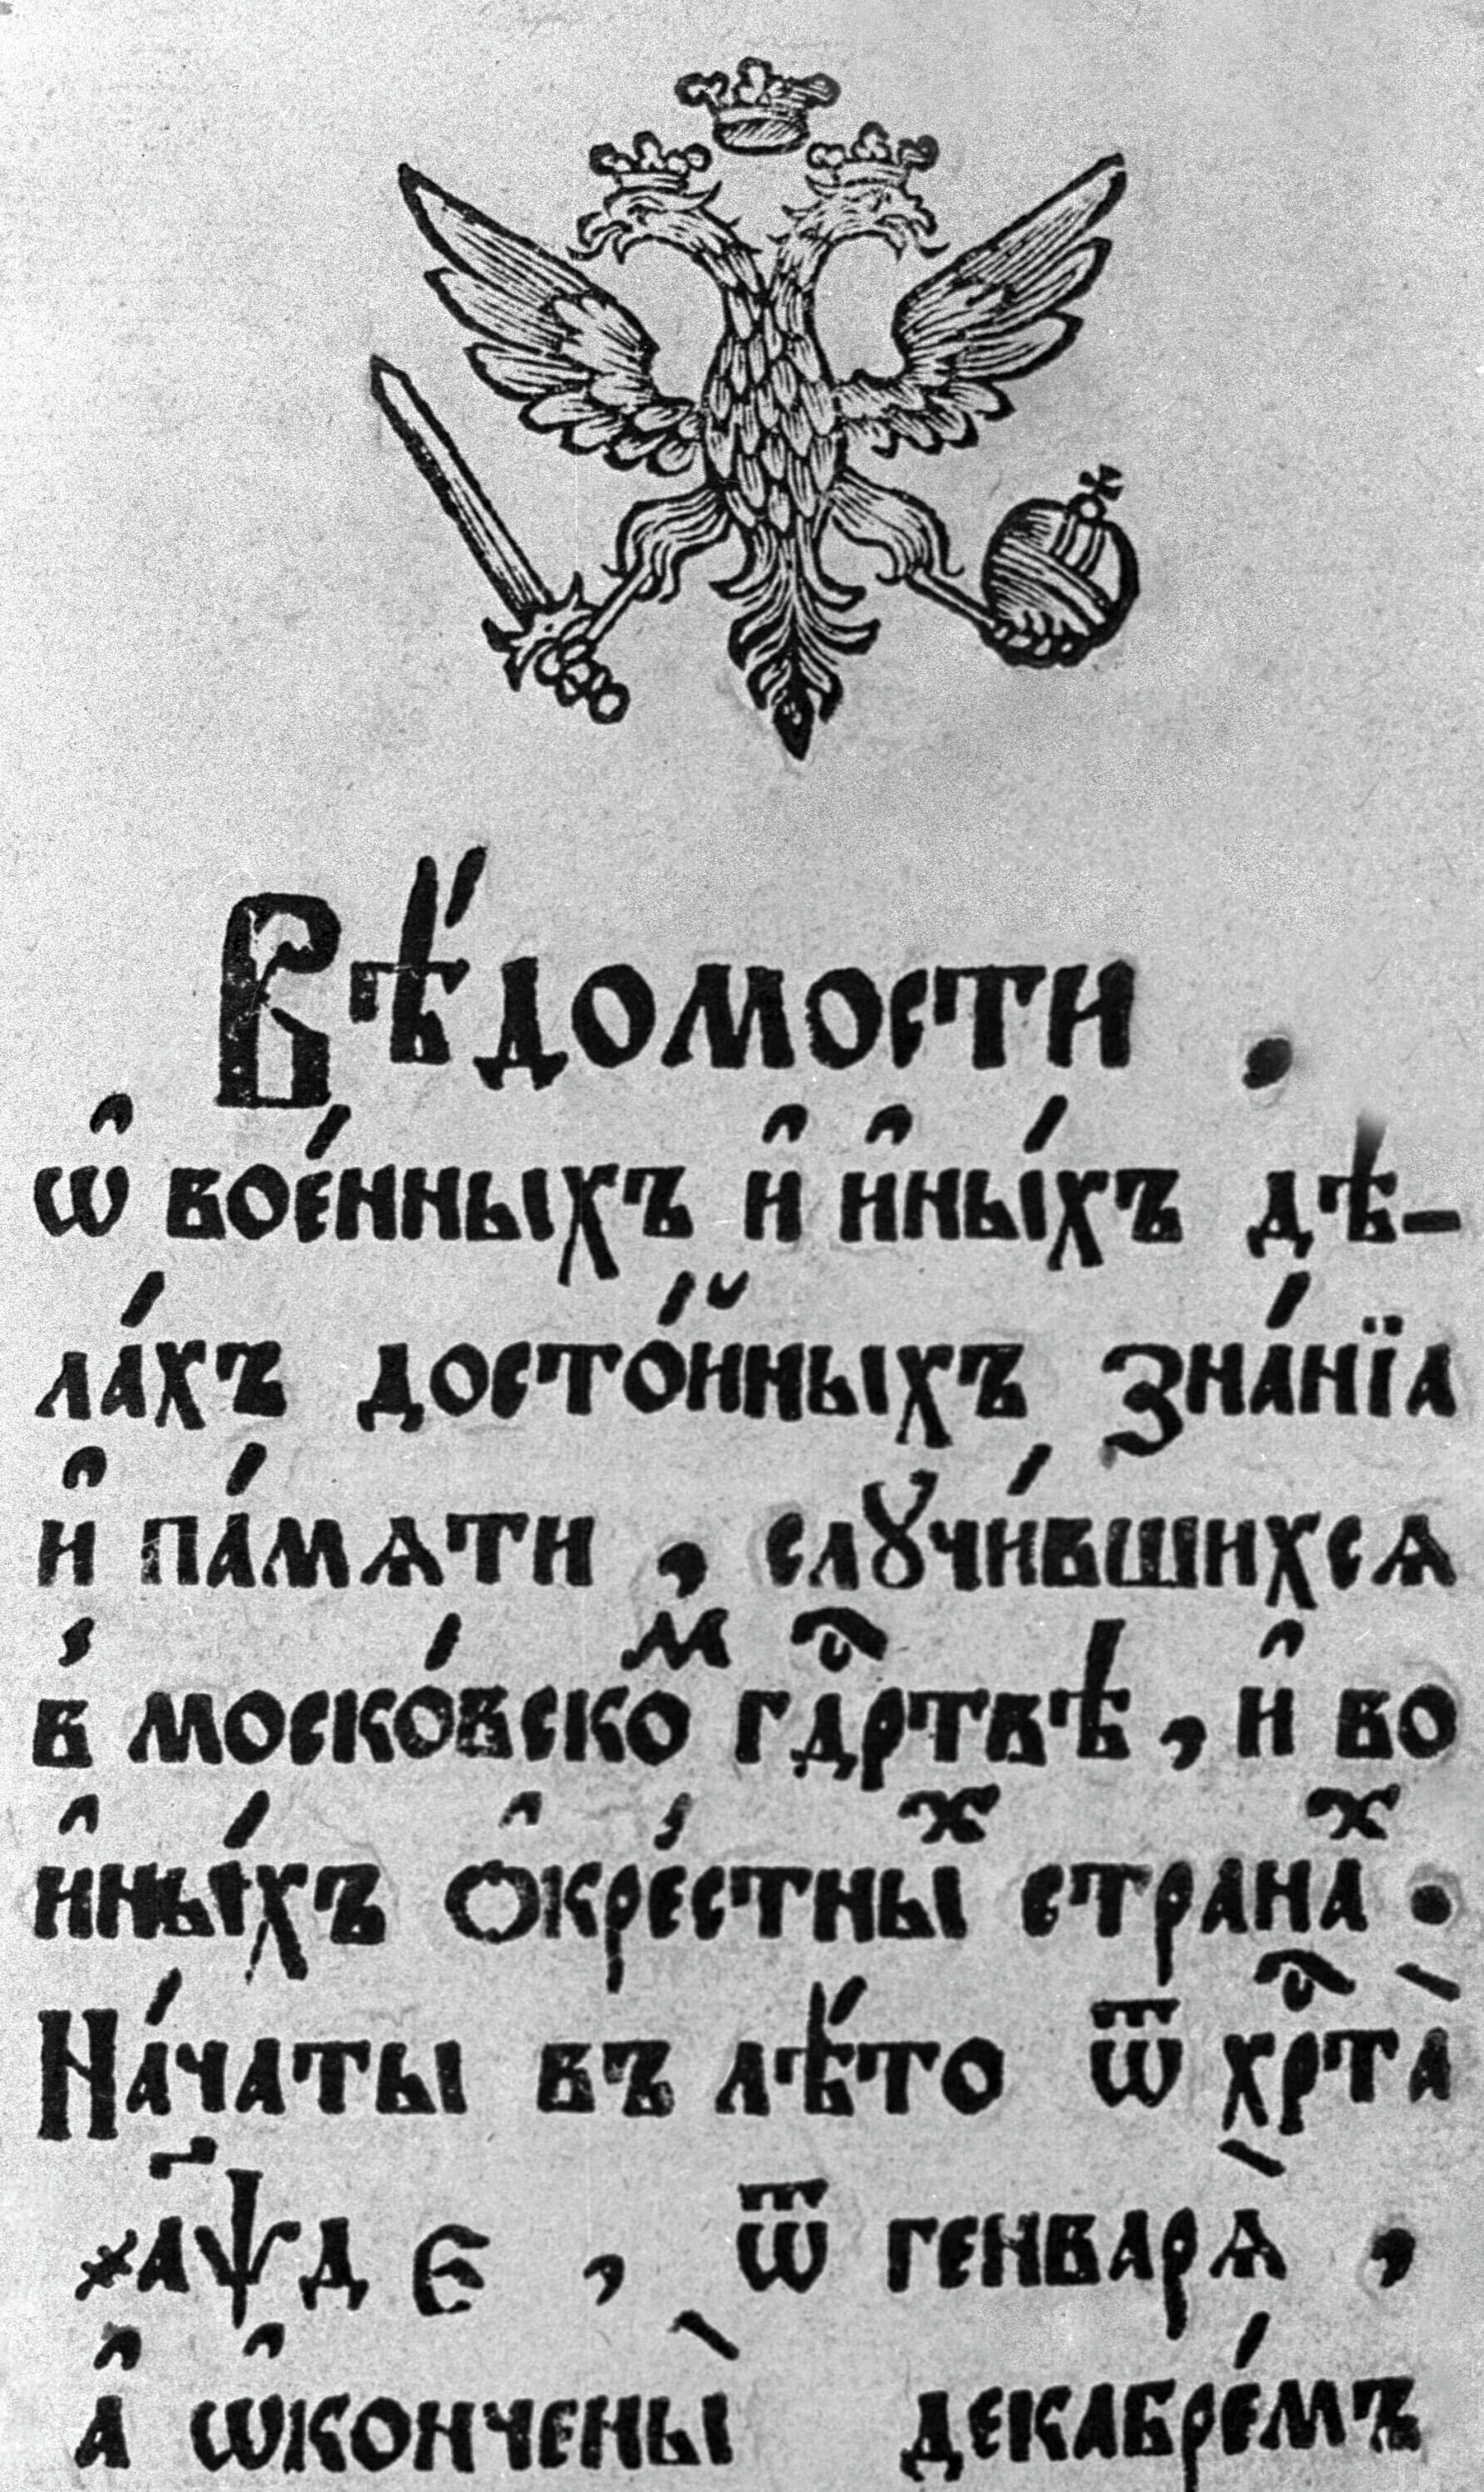 Вѣ́домости .
ѡ҆ вое́нныхъ и҆ и҆ны́хъ дѣ-
ла́хъ досто́йныхъ зна́нїа
и҆ па́мѧти , слꙋчи́вшихсѧ
в̾ моско́вскоⷨ гдⷭ҇ртвѣ , и҆ во
и҆ны́хъ ѻ҆кре́стныⷯ странаⷯ .
На́чаты въ лѣ́то ѿ хрⷭ҇та̀
҂аѱ҃д є , ѿ генварѧ̀ ,
а҆ ѡ҆кончены̀ декабре́мъ